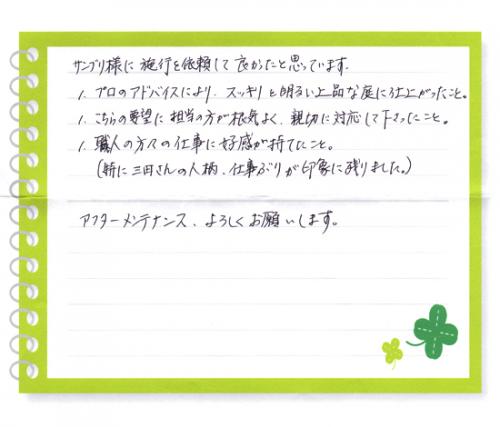 サンプリ様に施行を依頼して良かったと思っています。
1. プロのアドバイスにより、スッキリと明るい上品な庭に仕上がったこと。
1. こちらの要望に担当の方が根気よく、親切に対応して下さったこと。
1. 職人の方々の仕事に好感が持てたこと。
(特に三田さんの人柄、仕事ぶりが印象に残りました。)
アフターメンテナンス、よろしくお願いします。